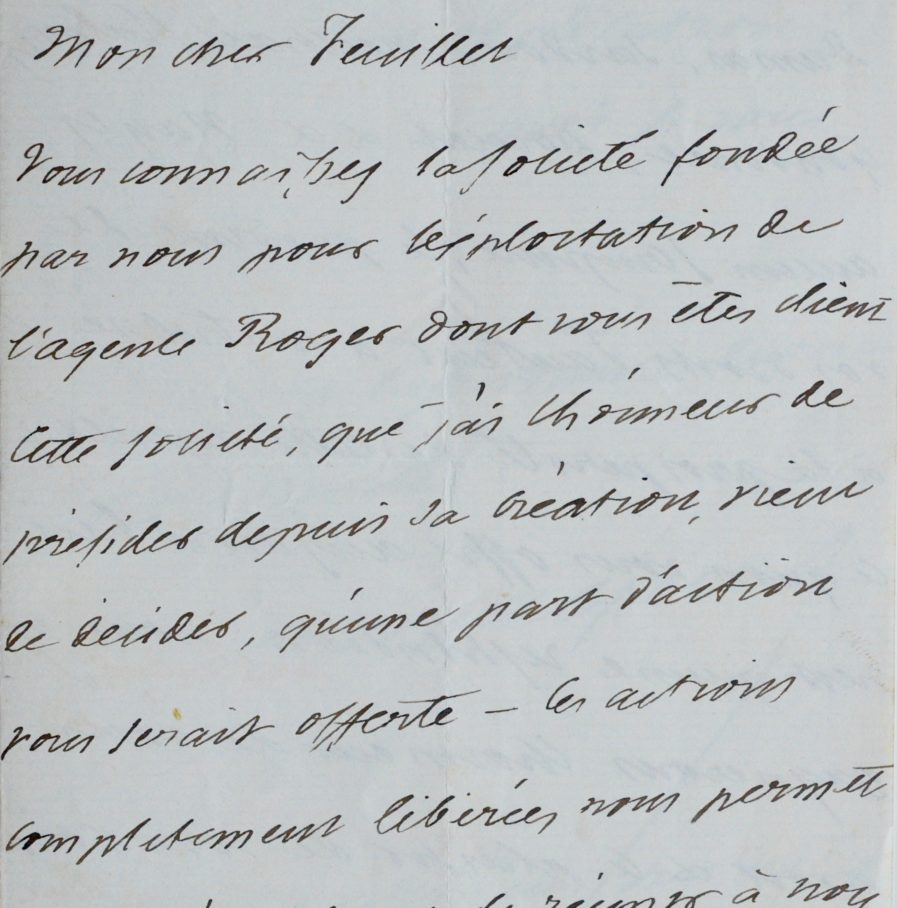 Mon cher Feuillet
Vous connaissez la société fondée
par nous pour l'exploitation de
l'agence Roger dont vous êtes client
Cette société, que j'ai l'honneur de
présider depuis sa création, vient
de décider, qu'une part d'action
vous serait offerte — les actions
complètement libérées nous permet
de réunir à nou